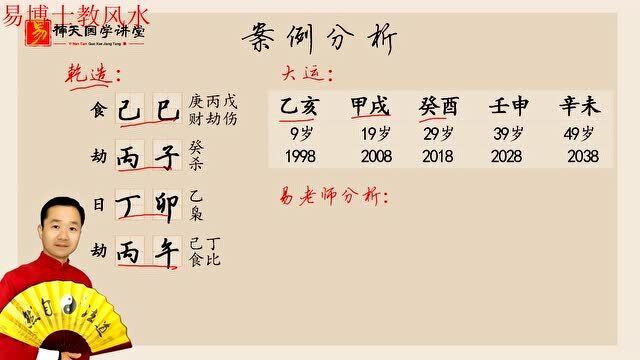 易博士教风水
易 楠天国学讲堂
Yi Nan Tian Guo Xue Jiang Tang
案例分析
乾造：
食 己 巳 庚丙戊
财劫伤
劫 丙 子 癸
杀
日 丁 卯 乙
枭
劫 丙 午 己丁
食比
大运：
乙亥 甲戌 癸酉 壬申 辛未
9岁 19岁 29岁 39岁 49岁
1998 2008 2018 2028 2038
易老师分析：
道法自然